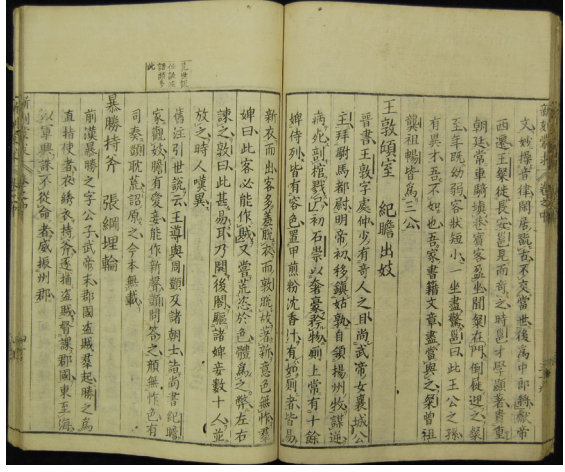 文妙操音律閑居翫古不交當世後爲中郎將獻帝
西遷王粲徙長安邕見而奇之時邕才學顯著貴重
朝廷常車騎塡巷賓客盈坐聞粲在門倒屣迎之粲
至年既幼弱容狀短小一坐盡驚邕曰此王公之孫
有異才吾不如也吾家書籍文章盡當與之粲曾祖
龔祖暢皆爲三公
王敦傾室　紀瞻出妓
晉書王敦字處仲少有奇人之目尚武帝女襄城公
主拜駙馬都尉明帝初移鎭姑孰自領揚州牧謀逆
病死剖棺戮尸初石崇以奢豪矜物廁上常有十餘
婢侍列皆有容色置甲煎粉沈香汁有如廁者皆易
新衣而出客多羞脫衣而敦脫故著新意色無怍羣
婢曰此客必能作賊又嘗荒恣於色體爲之弊左右
諫之敦曰此甚易耳乃開後閤驅諸婢妾數十人並
放之時人嘆異
舊注引世說云王導與周顗及諸朝士詣尚書紀瞻
家觀妓瞻有愛妾能作新聲顗問荅之顏無怍色有
司奏顗耽荒詔原之今本無載
暴勝持斧　張綱埋輪
前漢暴勝之字公子武帝末郡國盜賊羣起勝之爲
直指使者衣繡衣持斧逐捕盜賊督課郡國東至海
以軍興誅不從命者威振州郡